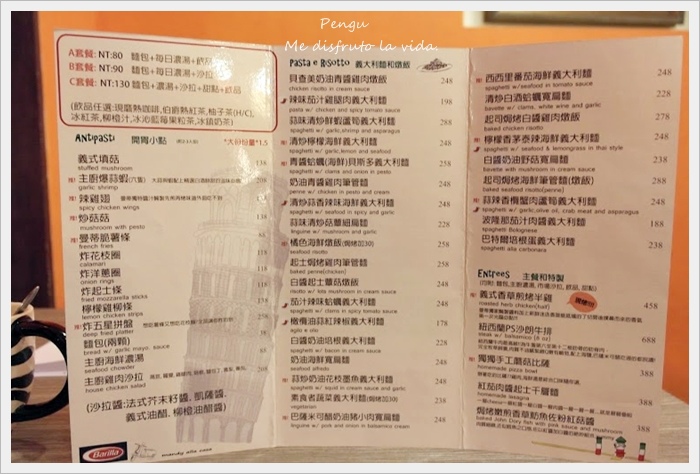 Pengu
Me disfruto la vida.
A套餐: NT:80 麵包+每日濃湯+飲品
B套餐: NT:90 麵包+每日濃湯+沙拉
C套餐: NT:130 麵包+濃湯+沙拉+甜點+飲品
(飲品任選:現磨熱咖啡,伯爵熱紅茶,柚子茶(H/C),
冰紅茶,柳橙汁,冰沁藍莓果粒茶,冰鎮奶茶)
Antipasti 開胃小點 *大份份量*1.5
義式填菇
stuffed mushroom
主廚爆蒜蝦(六隻)
garlic shrimp
辣雞翅
spicy chicken wings
炒菇菇
mushroom with pesto
曼蒂脆薯條
french fries
炸花枝圈
calamari
炸洋蔥圈
onion rings
炸起士條
fried mozzarella sticks
檸檬雞柳條
lemon chicken strips
炸五星拼盤
deep fried platter
麵包(兩顆)
bread w/ garlic mayo. sauce
主廚海鮮濃湯
seafood chowder
主廚雞肉沙拉
house chicken salad
(沙拉醬:法式芥末籽醬, 凱薩醬,
義式油醋, 柳橙油醋醬)
Barilla
Pasta e Risotto 義大利麵和燉飯
貝查美奶油青醬雞肉燉飯 248
chicken risotto in cream sauce
辣味茄汁雞腿肉義大利麵 198
pasta w/ chicken and spicy tomato sauce
蒜味清炒鮮蝦蘆筍義大利麵 288
spaghetti w/ garlic,shrimp and asparagus
清炒檸檬海鮮義大利麵 248
spaghetti w/ garlic,lemon and seafood
青醬蛤蠣(海鮮)貝斯多義大利麵 248
spaghetti w/ clams in pesto
奶油青醬雞肉筆管麵 248
penne w/ chicken in pesto and cream
清炒蒜香辣味海鮮義大利麵 248
spaghetti w/ seafood in spicy and garlic
蒜味清炒菇蕈細扁麵 228
linguine w/ mushroom and garlic
橘色海鮮燉飯(焗烤加30) 248
seafood risotto
起士焗烤雞肉筆管麵 248
baked penne(chicken)
白醬起士蕈菇燉飯 248
risotto w/ lots mushroom in cream sauce
茄汁辣味蛤蠣義大利麵 248
spaghetti w/ clams in spicy tomato sauce
橄欖油蒜紅辣椒義大利麵 178
aglio e olio
白醬奶油培根義大利麵 228
spaghetti w/ bacon in cream sauce
奶油海鮮寬扁麵 248
seafood alfredo
蒜炒奶油花枝墨魚義大利麵 248
spaghetti w/ squid in cream sauce and garlic
素食者蔬菜義大利麵(焗烤加30) 228
vegetarian
巴薩米可醋奶油豬小肉寬扁麵 248
linguine w/ pork and onion in balsamico cream
西西里番茄海鮮義大利麵 228
spaghetti w/seafood in tomato sauce
清炒白酒蛤蠣寬扁麵 248
bavette w/ clams, white wine and garlic
起司焗烤白醬雞肉燉飯 278
baked chicken risotto
檸檬香茅泰辣海鮮義大利麵 268
spaghetti w/ seafood & lemongrass in thai style
白醬奶油野菇寬扁麵 228
bavette with mushroom in cream sauce
起司焗烤海鮮筆管麵(燉飯) 288
baked seafood risotto(penne)
蒜辣香欖蟹肉蘆筍義大利麵 288
spaghetti w/ garlic,olive oil, crab meat and asparagus
波隆那茄汁肉醬義大利麵 188
spaghetti Bolognese
巴特爾培根蛋義大利麵 238
spaghetti alla carbonara
Entrees 主餐和特製
義式香草煎烤半雞 458
roasted herb chicken(half)
紐西蘭PS沙朗牛排 688
steak w/ balsamico (8 oz)
獨獨手工蘑菇比薩 388
homemade pizza bowl
紅茄肉醬起士千層麵 388
homemade lasagna
焗烤嫩煎香草魴魚佐粉紅菇醬 388
baked John Dory fish with pink sauce and mushroom